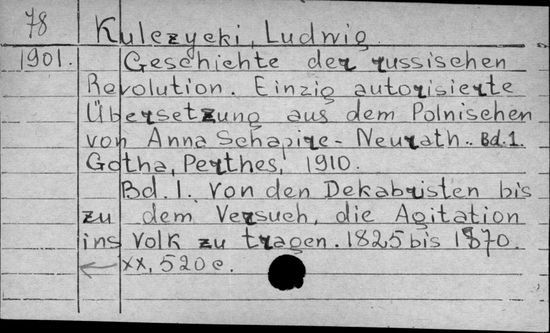 78 Kulczycki, Ludwig
1901. Geschichte der russischen
Revolution. Einzig autorisierte
Übersetzung aus dem Polnischen
von Anna Schapire-Neurath.. Bd.1.
Gotha, Perthes, 1910.
Bd.I. von den Dekabristen bis
zu dem Versuch, die Agitation
ins Volk zu tragen. 1825 bis 1870.
XX, 520 c.